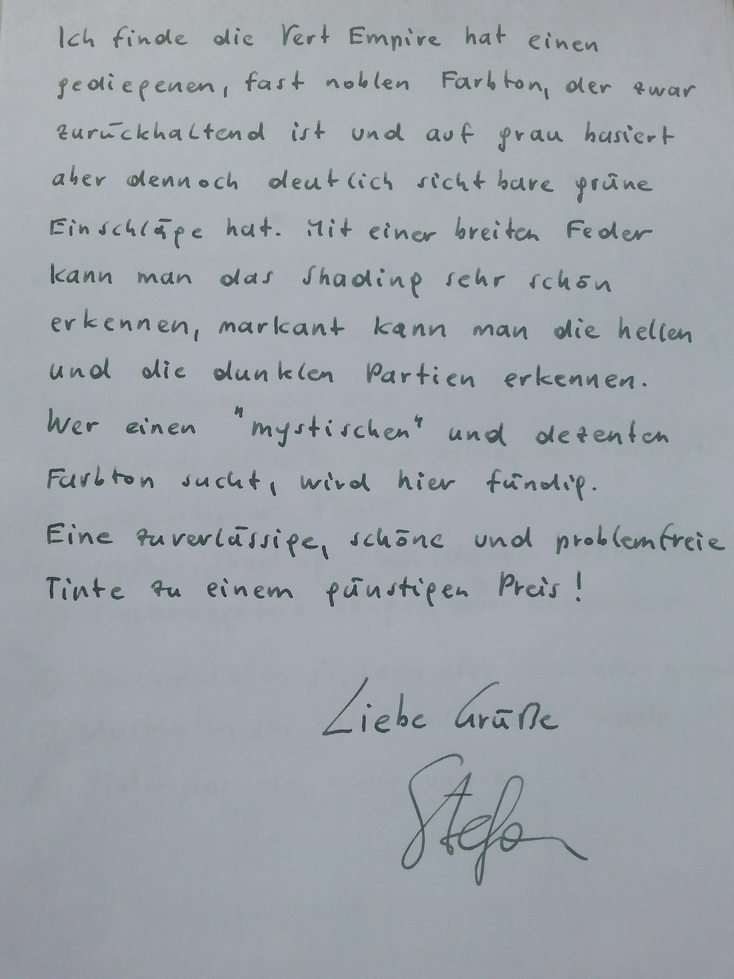 Ich finde die Vert Empire hat einen
gediegenen, fast noblen Farbton, der zwar
zurückhaltend ist und auf grau basiert
aber dennoch deutlich sichtbare grüne
Einschläge hat. Mit einer breiten Feder
kann man das Shading sehr schön
erkennen, markant kann man die hellen
und die dunklen Partien erkennen.
Wer einen "mystischen" und dezenten
Farbton sucht, wird hier fündig.
Eine zuverlässige, schöne und problemfreie
Tinte zu einem günstigen Preis!
Liebe Grüße
Stefan